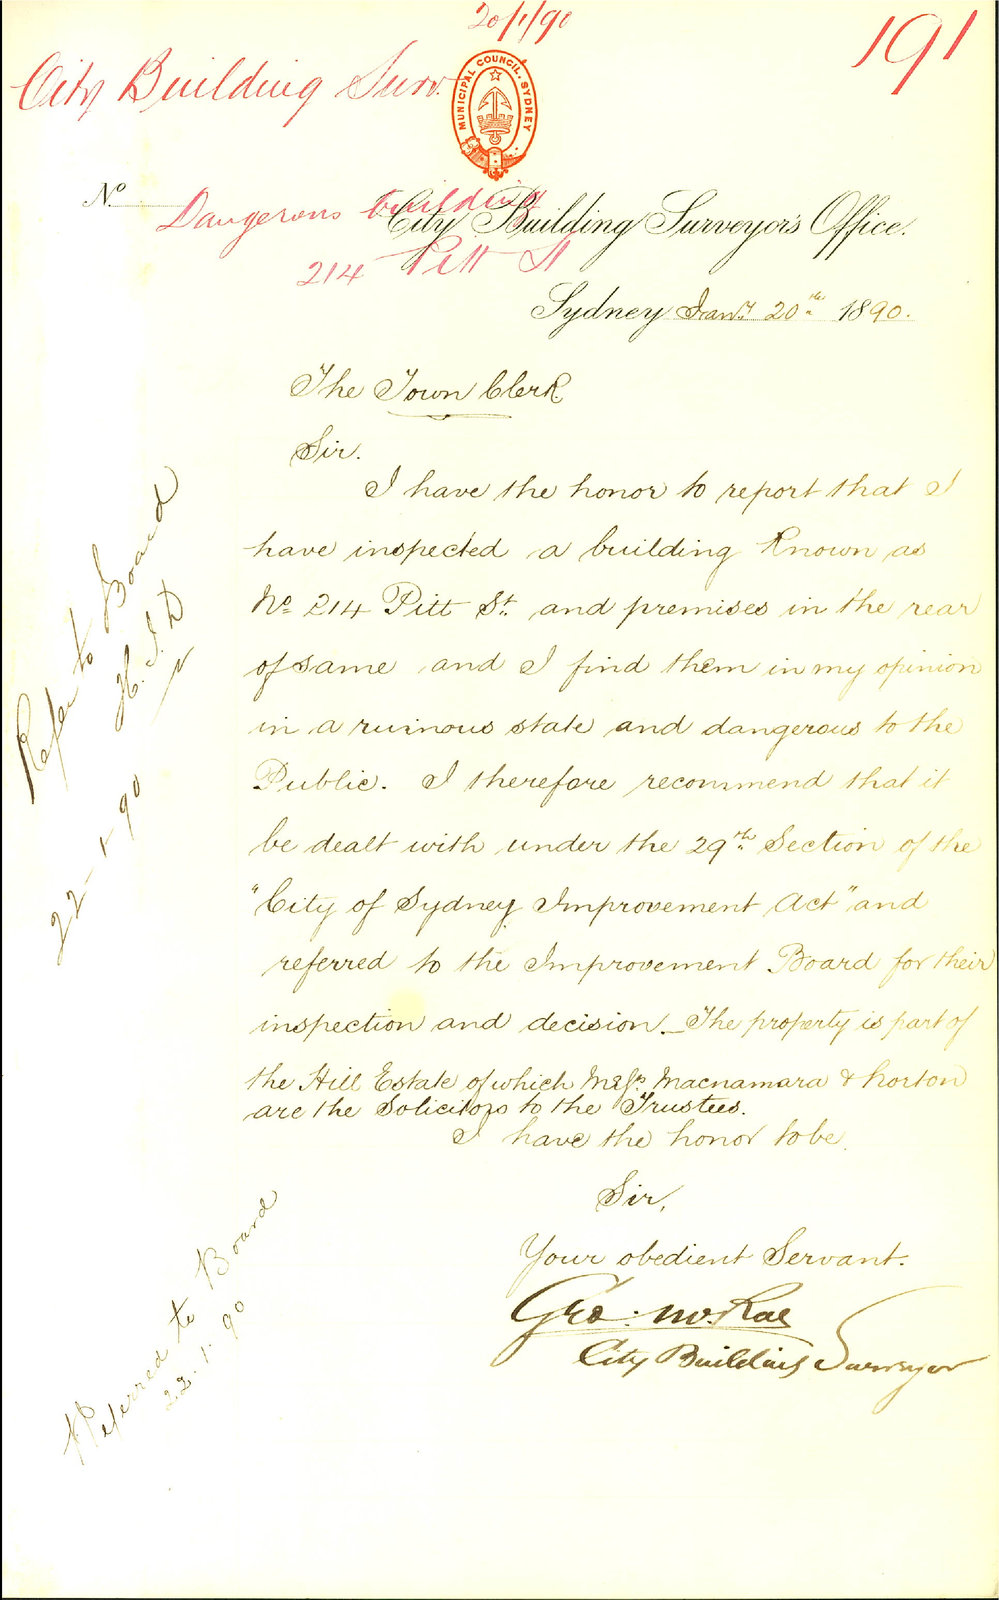 20/1/90
191
City Building Surv.
MUNICIPAL COUNCIL. SYDNEY
No
Dangerous building
214 Pitt St
City Building Surveyor's Office.
Sydney Jany 20th 1890.
The Town Clerk
Sir.
I have the honor to report that I
have inspected a building Known as
No. 214 Pitt St. and premises in the rear
of same and I find them in my opinion
in a ruinous state and dangerous to the
Public. I therefore recommend that it
be dealt with under the 29th Section of the
"City of Sydney Improvement Act" and
referred to the Improvement Board for their
inspection and decision._ The property is part of
the Hill Estate of which Messrs. Macnamara & Norton
are the Solicitors to the Trustees.
I have the honor to be.
Sir,
Your obedient Servant.
Geo. McRae
City Building Surveyor
Refer to Board
H. J. D
22-1-90
Referred to Board
22.1.90